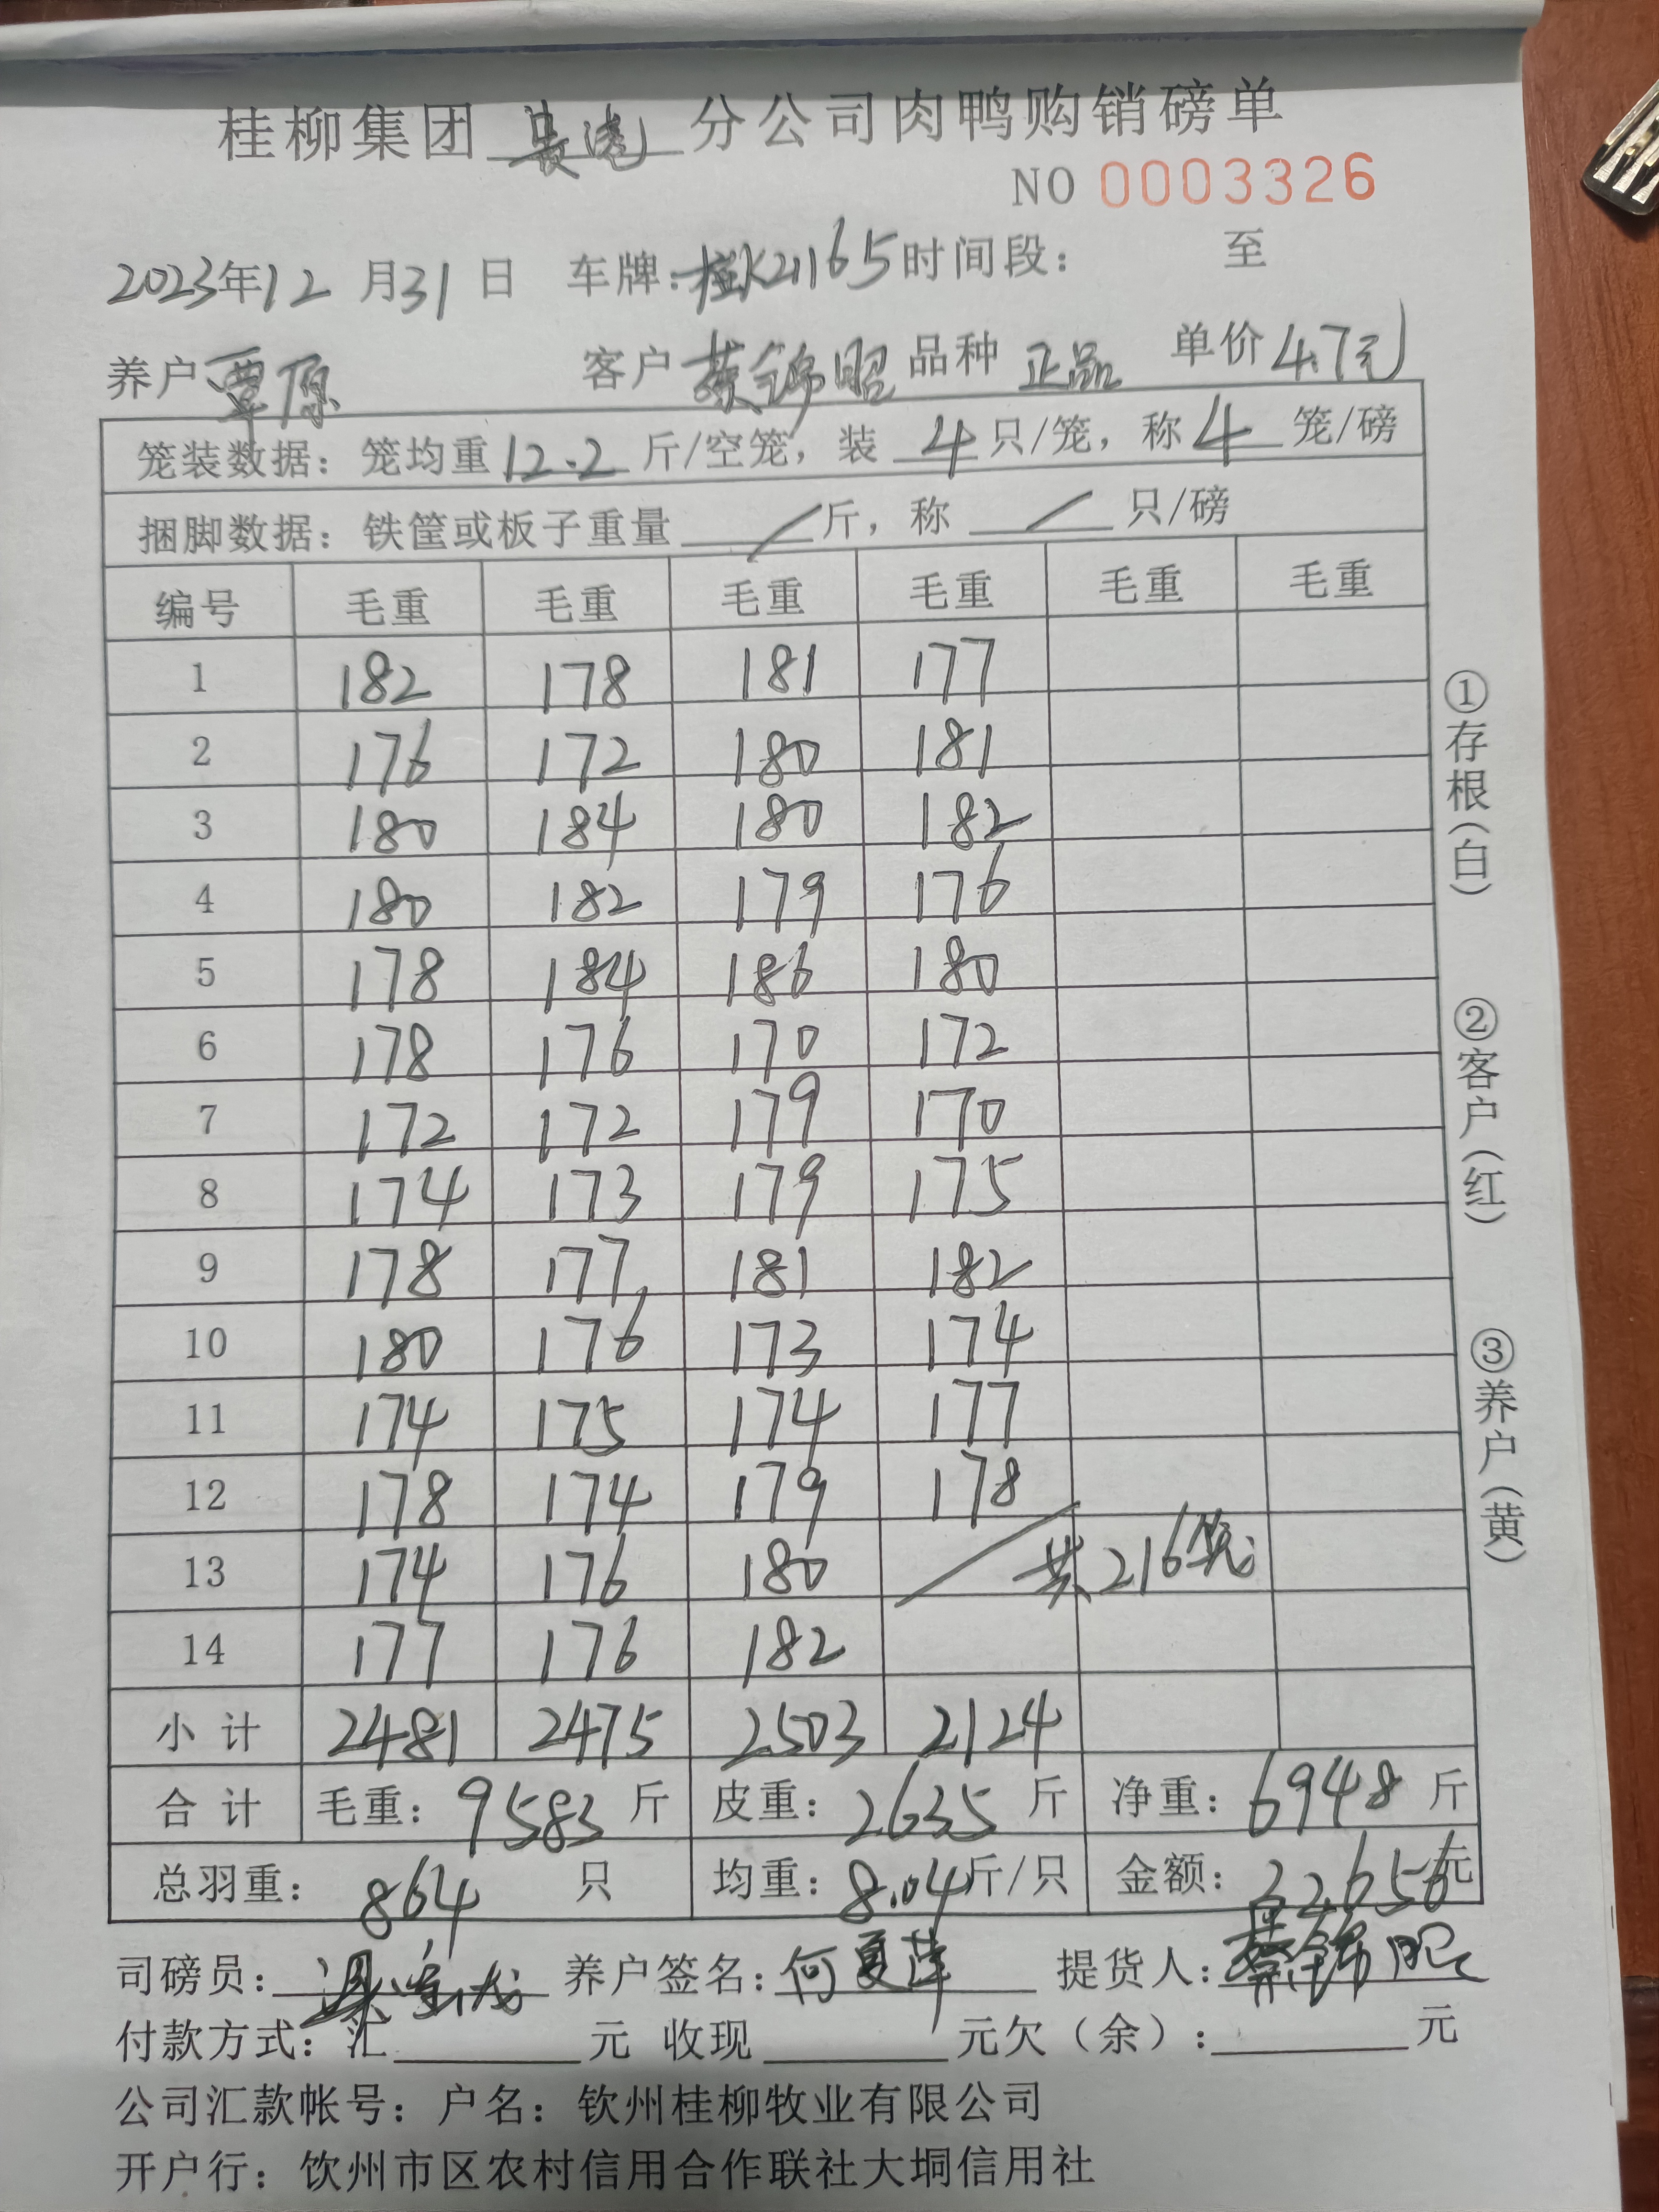 桂柳集团 分公司肉鸭购销磅单
NO 0003326
2023年12月31日 车牌:桂K21165时间段: 至
养户覃原 客户蔡锦昭品种正品 单价4.7元
笼装数据:笼均重12.2斤/空笼,装4只/笼,称4笼/磅
捆脚数据:铁筐或板子重量/斤,称/只/磅
编号 毛重 毛重 毛重 毛重 毛重 毛重
1 182 178 181 177
2 176 172 180 181
3 180 184 180 182
4 180 182 179 176
5 178 184 186 180
6 178 176 170 172
7 172 172 179 170
8 174 173 179 175
9 178 177 181 182
10 180 176 173 174
11 174 175 174 177
12 178 174 179 178
13 174 176 180 / 共216笼
14 177 176 182
小计 2481 2475 2503 2124
合计 毛重:9583斤 皮重:2635斤 净重:6948斤
总羽重:864只 均重:8.04斤/只 金额:32656元
司磅员: 养户签名:何夏萍 提货人:蔡锦昭
付款方式:汇 元 收现 元欠(余): 元
公司汇款帐号:户名:钦州桂柳牧业有限公司
开户行:钦州市区农村信用合作联社大垌信用社
①存根(白) ②客户(红) ③养户(黄)